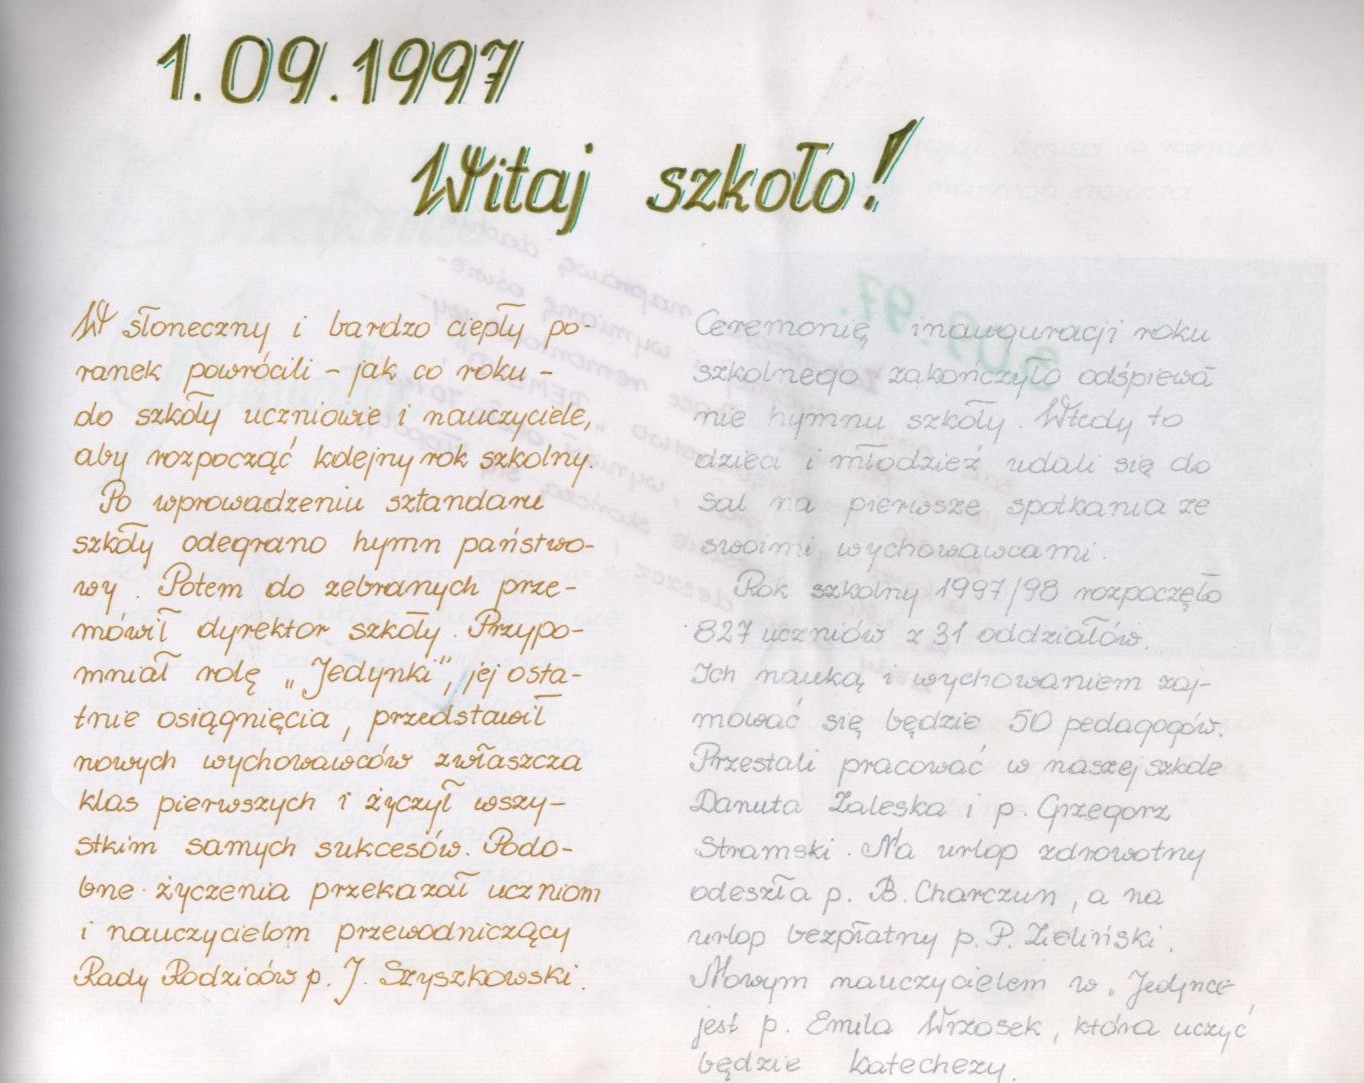 1.09.1997
Witaj szkoło!
W słoneczny i bardzo ciepły po-
ranek powrócili – jak co roku –
do szkoły uczniowie i nauczyciele,
aby rozpocząć kolejny rok szkolny.
Po wprowadzeniu sztandaru
szkoły odegrano hymn państwo-
wy. Potem do zebranych prze-
mówił dyrektor szkoły. Przypo-
mniał rolę „Jedynki”, jej osta-
tnie osiągnięcia, przedstawił
nowych wychowawców zwłaszcza
klas pierwszych i życzył wszy-
stkim samych sukcesów. Podo-
bne życzenia przekazał uczniom
i nauczycielom przewodniczący
Rady Rodziców p. J. Szyszkowski.
Ceremonię inauguracji roku
szkolnego zakończyło odśpiewa
nie hymnu szkoły. Wtedy to
dzieci i młodzież udali się do
sal na pierwsze spotkania ze
swoimi wychowawcami.
Rok szkolny 1997/98 rozpoczęło
827 uczniów z 31 oddziałów.
Ich nauką i wychowaniem zaj-
mować się będzie 50 pedagogów.
Przestali pracować w naszej szkole
Danuta Zaleska i p. Grzegorz
Stramski. Na urlop zdrowotny
odeszła p. B. Charczun, a na
urlop bezpłatny p. P. Zieliński.
Nowym nauczycielem w „Jedynce
jest p. Emila Wrzosek, która uczyć
będzie katechezy.